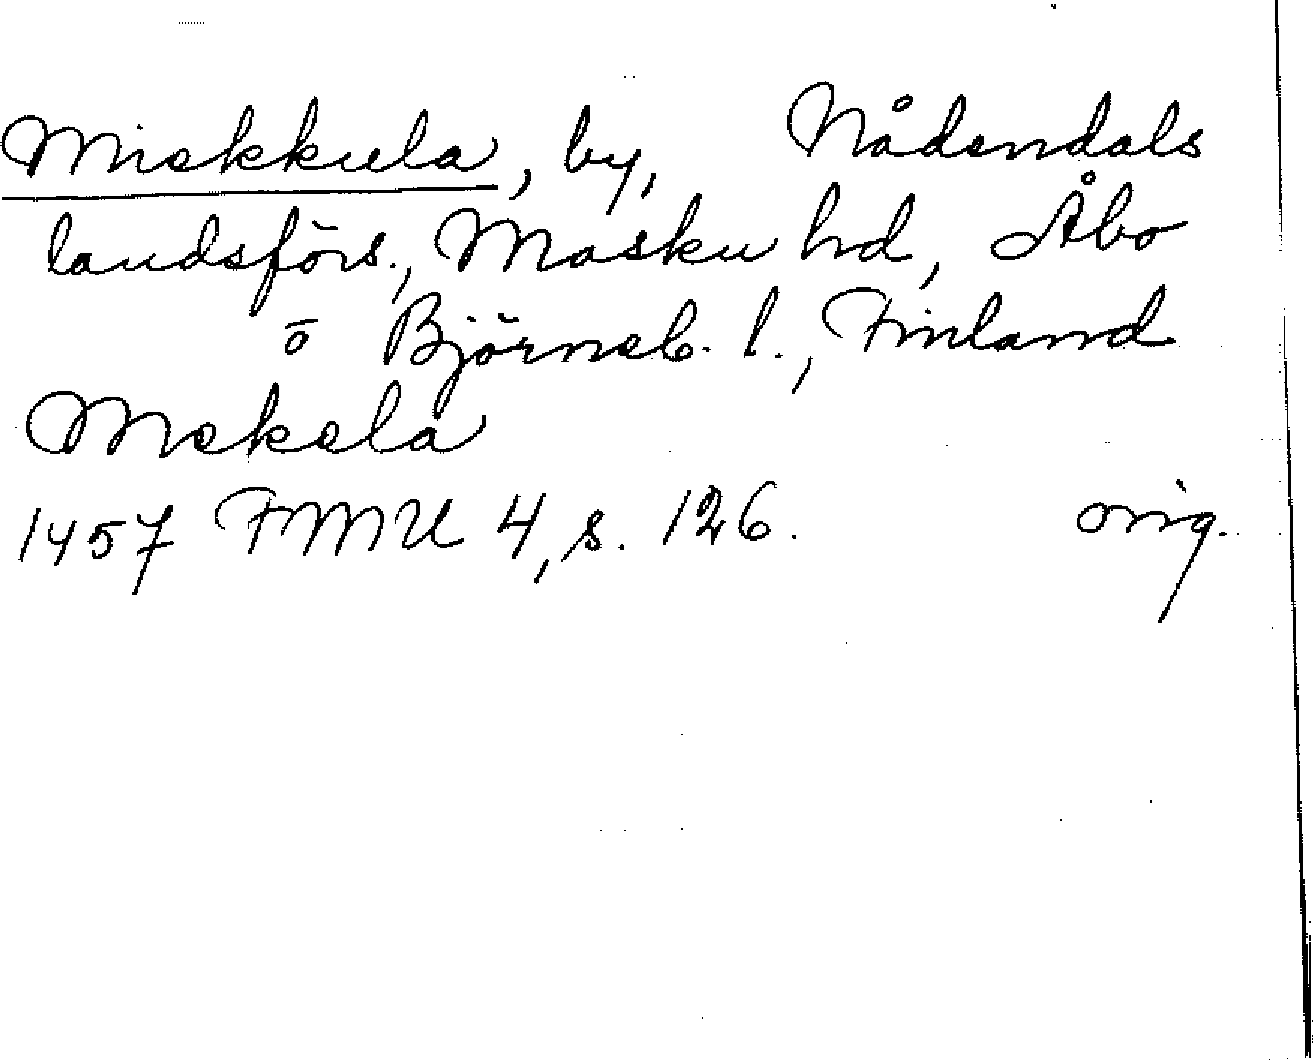 Miekkula, by, Nådendals
landsförs., Masku hd, Åbo
o Björneb. l., Finland
Mekela
1457 FMU 4, s. 126. orig.